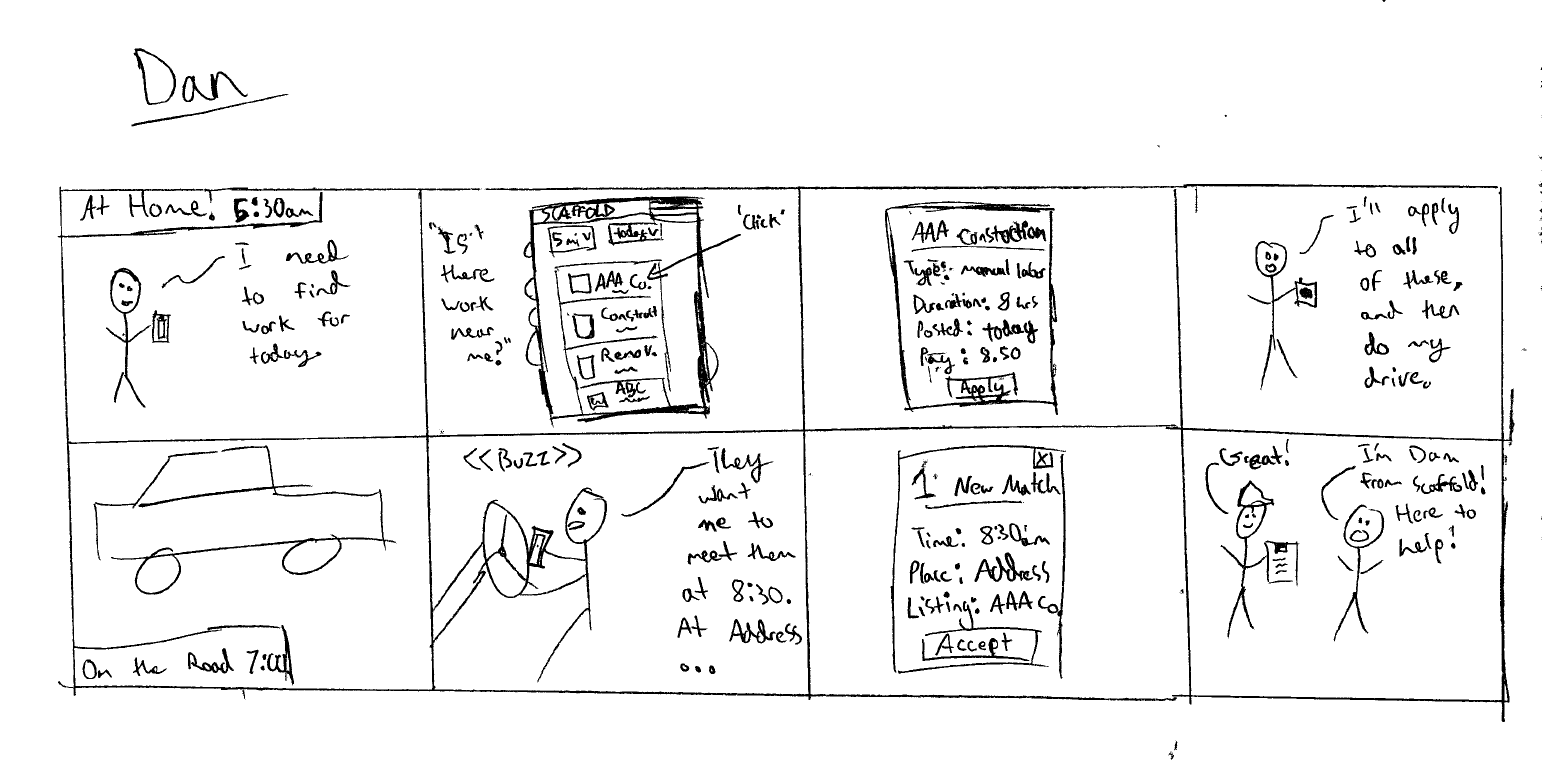 Dan
At Home! 5:30am
I need
to find
work for
today.
"Is
there
work
near
me?"
SCAFFOLD
5 mi v
today v
'Click'
AAA Co.
Construct
Renov.
ABC
AAA Constoction
Type: manual labor
Duraration: 8 hrs
Posted: today
Pay: 8.50
Apply
I'll apply
to all
of these,
and then
do my
drive.
On the Road 7:00
<<Buzz>>
They
want
me to
meet them
at 8:30.
At Address
...
X
1 New Match
Time: 8:30am
Place: Address
Listing: AAA Co.
Accept
Great!
I'm Dan
from Scaffold!
Here to
help!